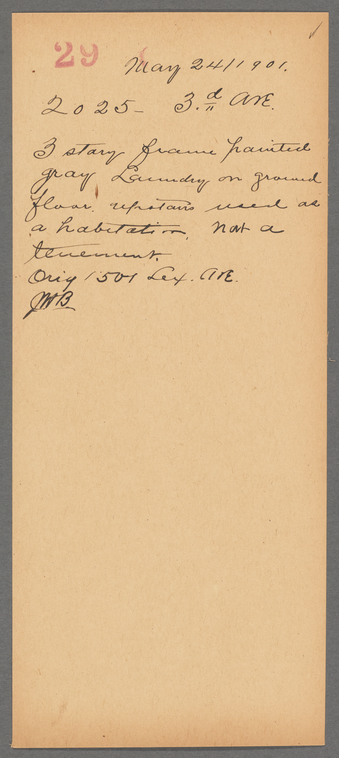 29
May 24/1901.
2025- 3.d Ave.
3 story frame painted
gray Laundry on ground
floor. upstairs used as
a habitation, not a
tenement.
Orig 1501 Lex. Ave.